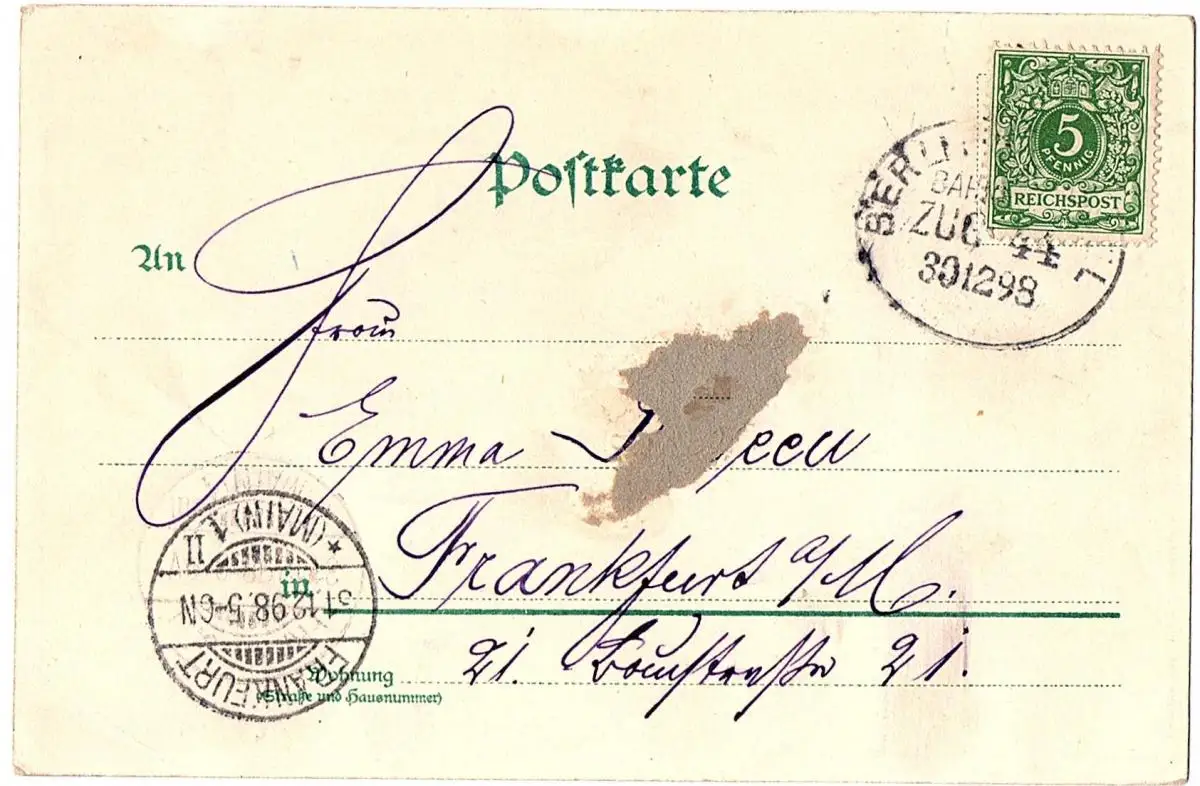 Postkarte
5
PFENNIG
REICHSPOST
BERLIN
BAH
ZUG 44
30 12 98
An
Frau
Emma
Frankfurt a/M.
in
21. Baustraße 21.
Wohnung
(Straße und Hausnummer)
FRANKFURT
31.12.98.5-6N
* (MAIN) 1.
II